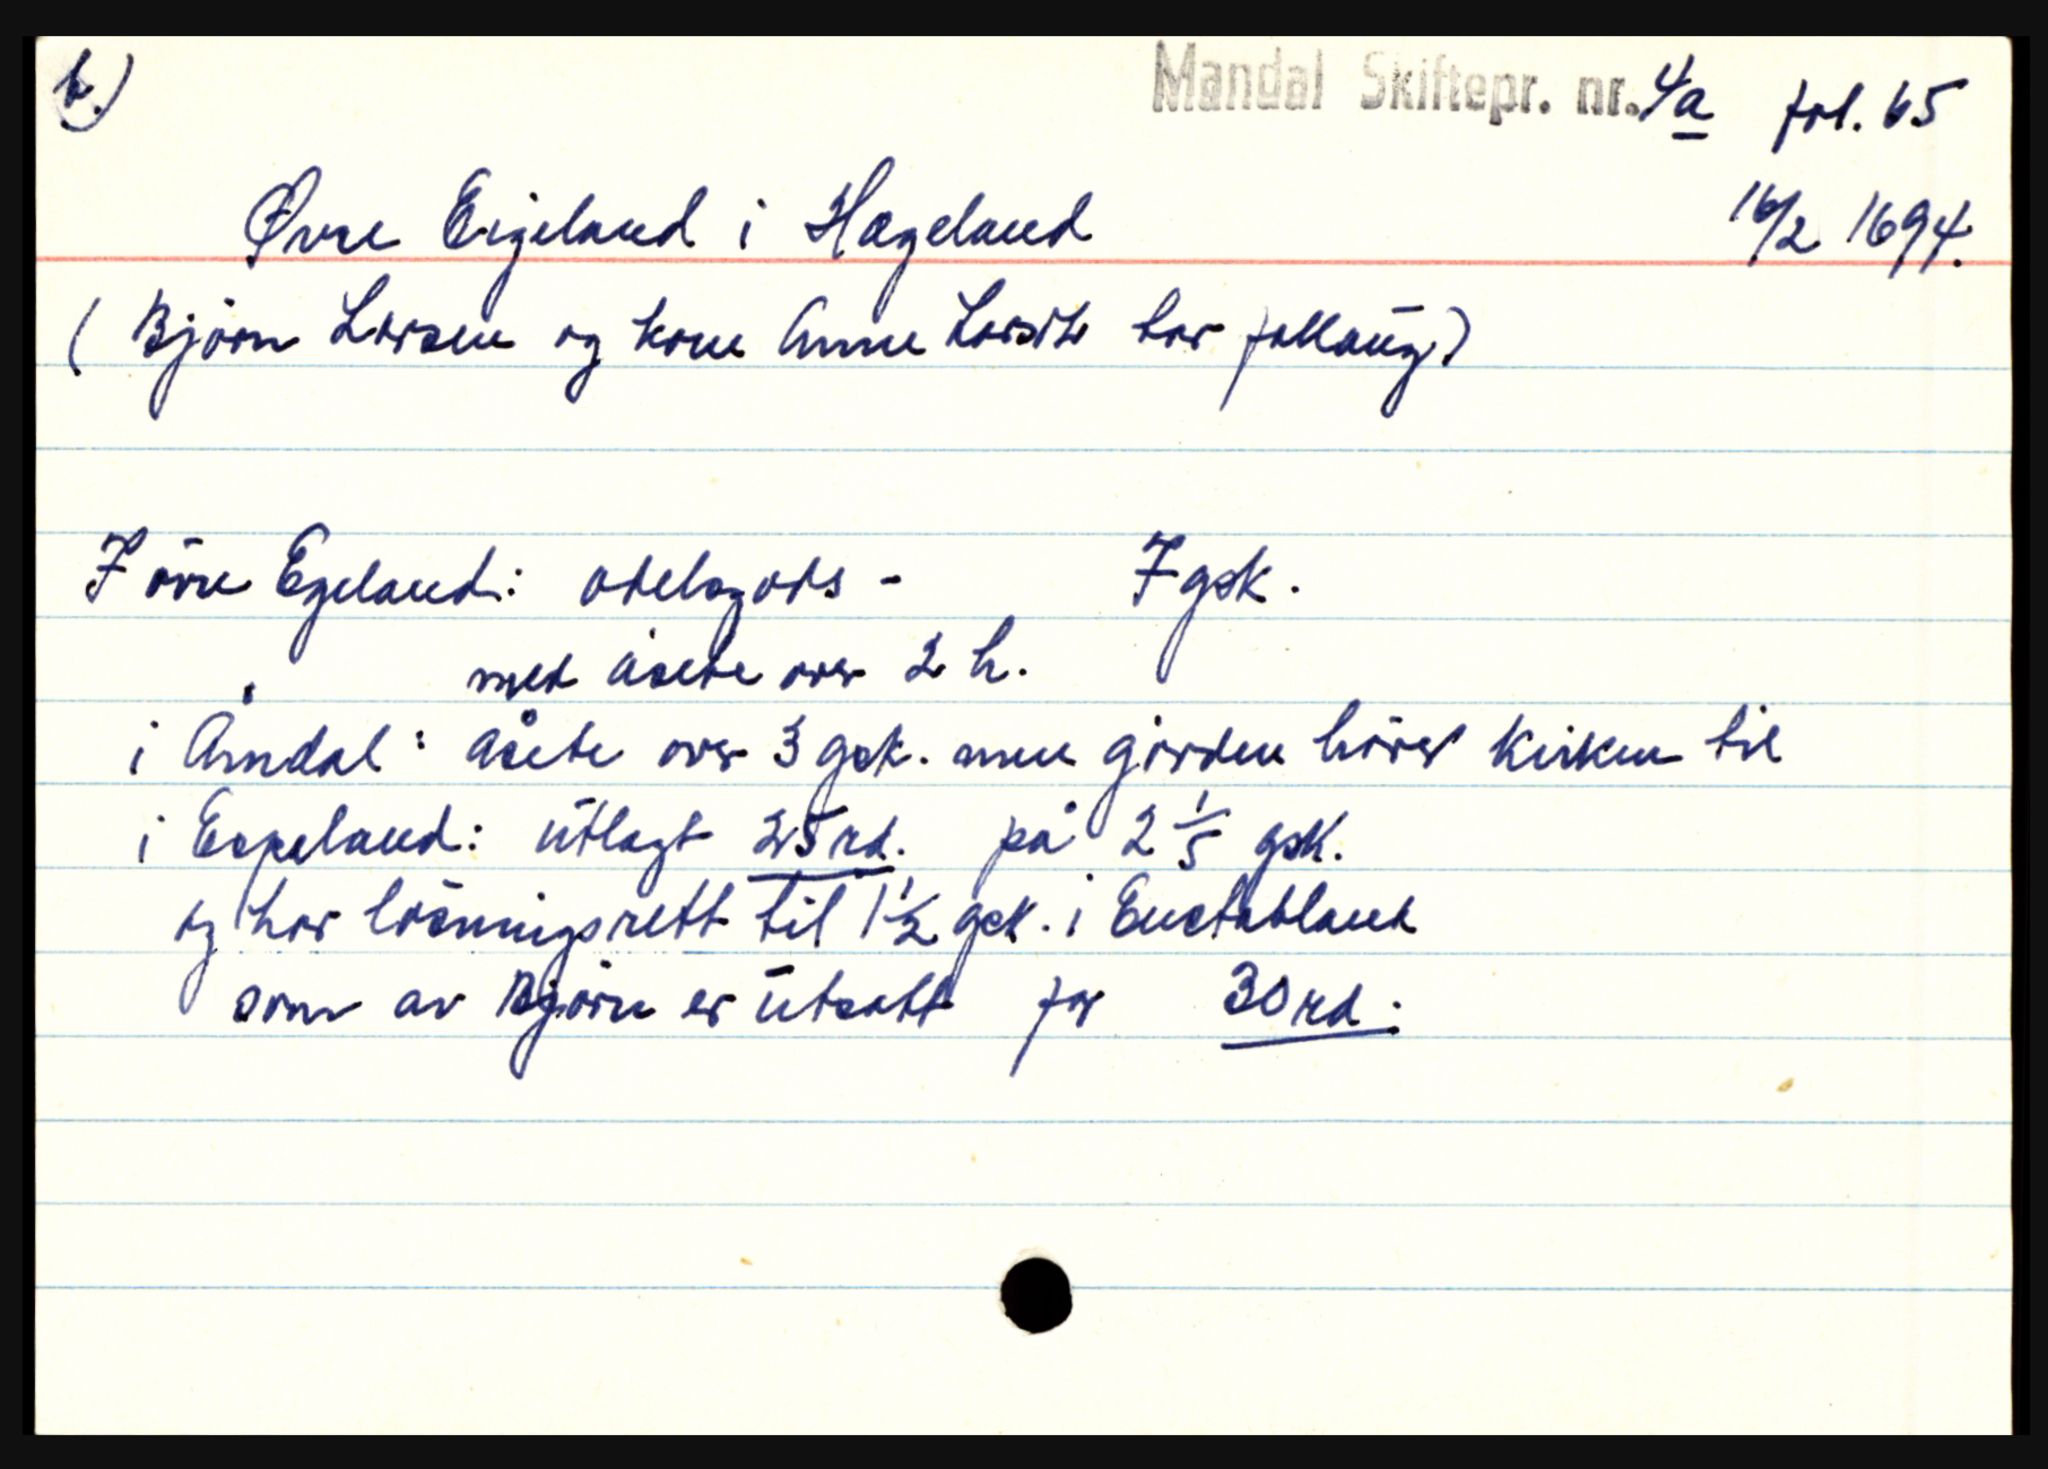 b.) Mandal Skiftepr. nr. 4a fol. 65
Øvre Eigeland i Hægeland 16/2 1694.
(Björn Larsen og kone Anne Larsdtr tar fallaug)
I övre Egeland: odelsgods - 7 gsk.
med åsete over 2 h.
i Åmdal: åsete over 3 gsk. men gården hörer kirken til
i Espeland: utlagt 25 rd. på 2 1/5 gsk.
og har lösningsrett til 1 1/2 gsk. i Enstabland
som av Björn er utsatt for 30 rd.